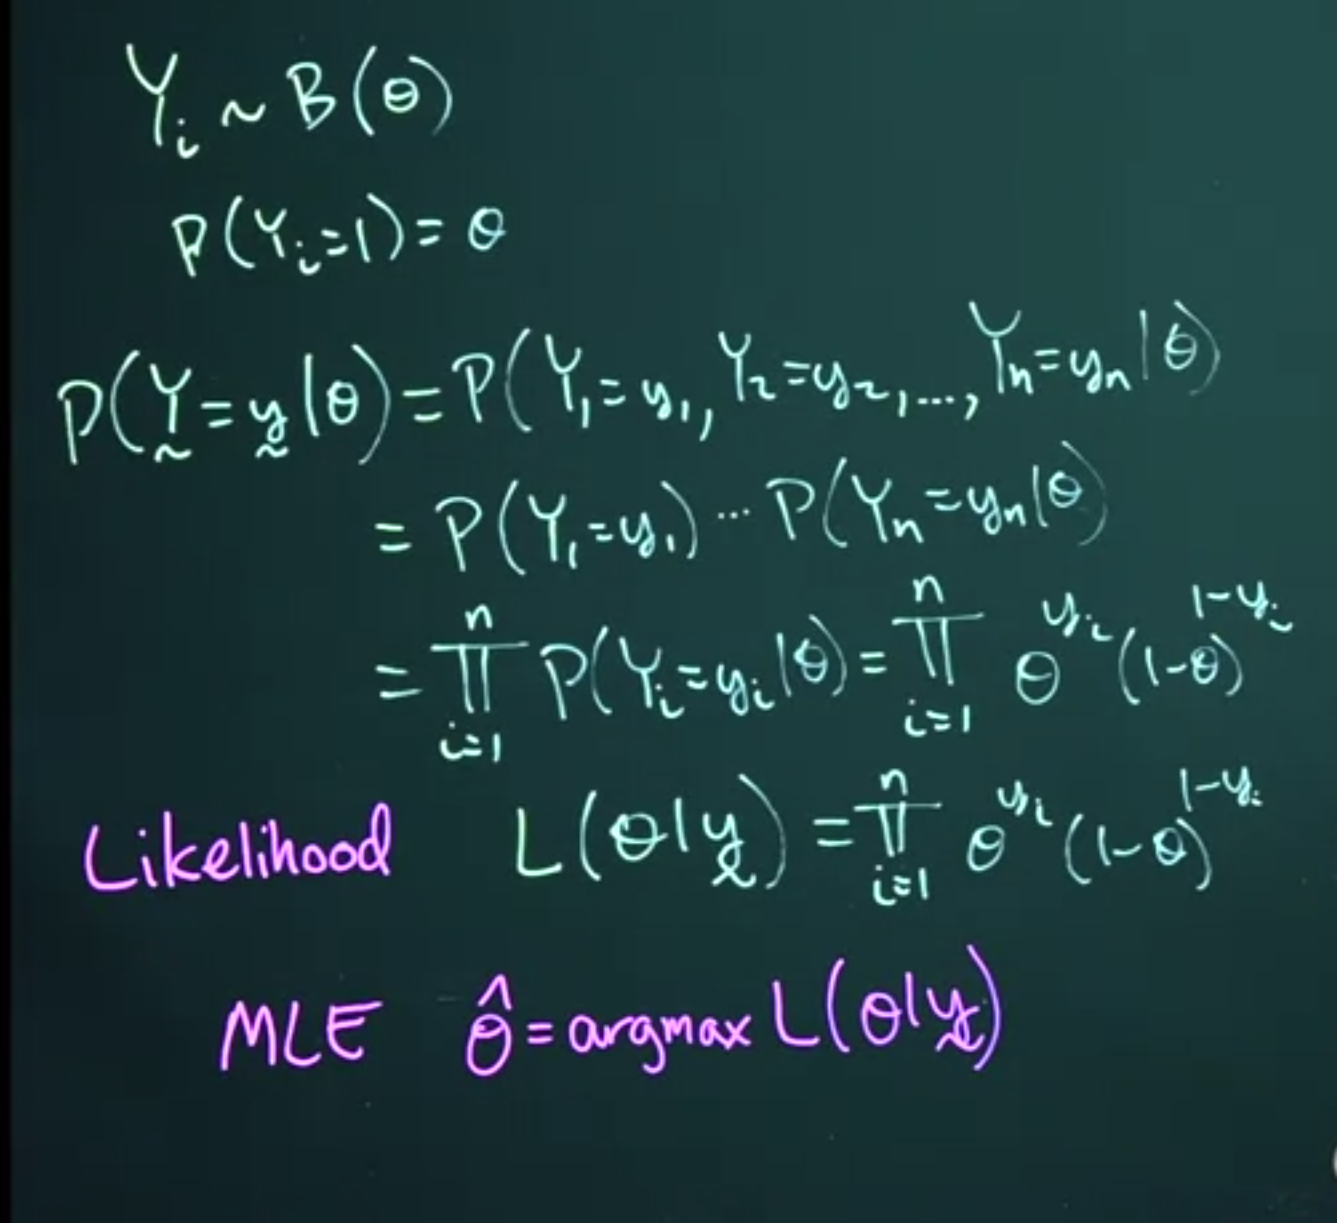 Y_i ~ B(θ)
P(Y_i=1)=θ
P(Y̰=y̰|θ)=P(Y_1=y_1, Y_2=y_2, ..., Y_n=y_n|θ)
=P(Y_1=y_1)⋯P(Y_n=y_n|θ)
=∏_{i=1}^{n} P(Y_i=y_i|θ)=∏_{i=1}^{n} θ^{y_i}(1-θ)^{1-y_i}
Likelihood L(θ|y̰)=∏_{i=1}^{n} θ^{y_i}(1-θ)^{1-y_i}
MLE θ̂=argmax L(θ|y̰)